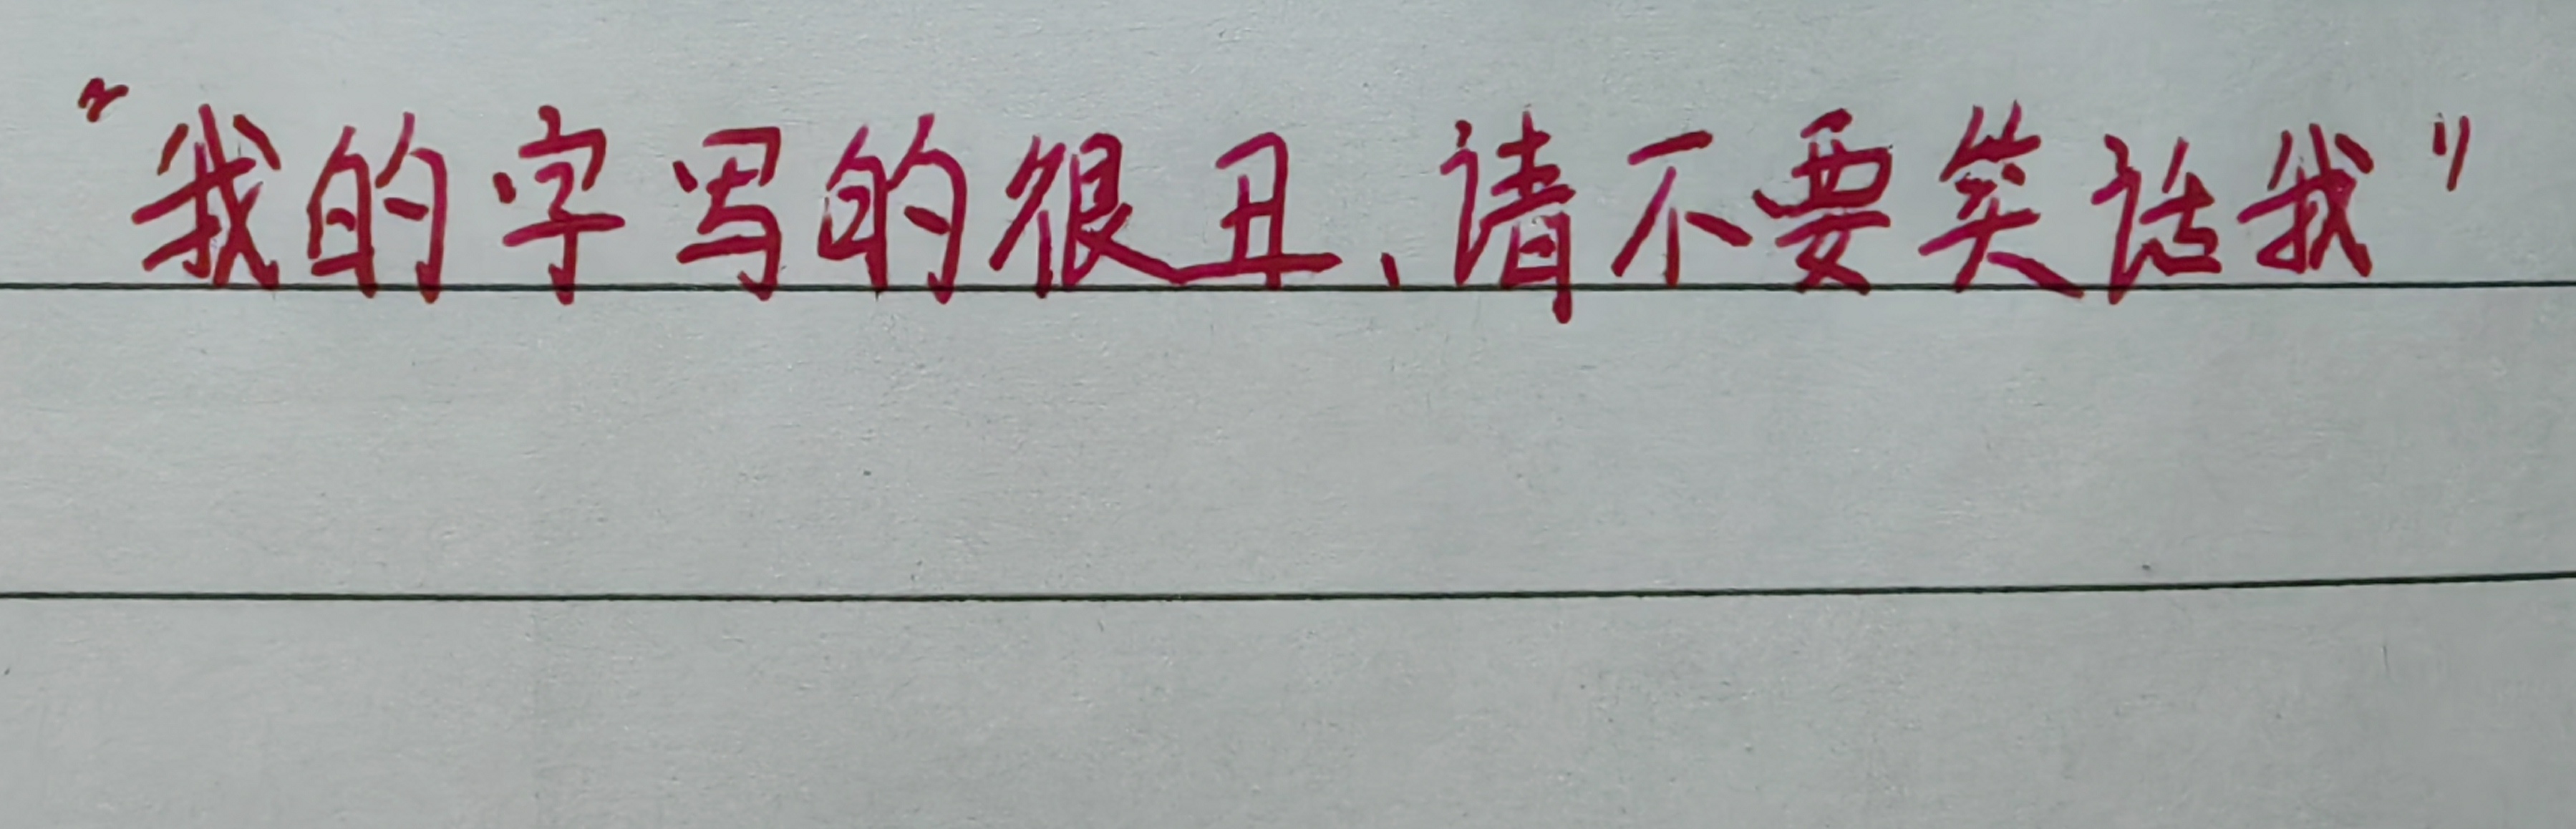 “我的字写的很丑、请不要笑话我”